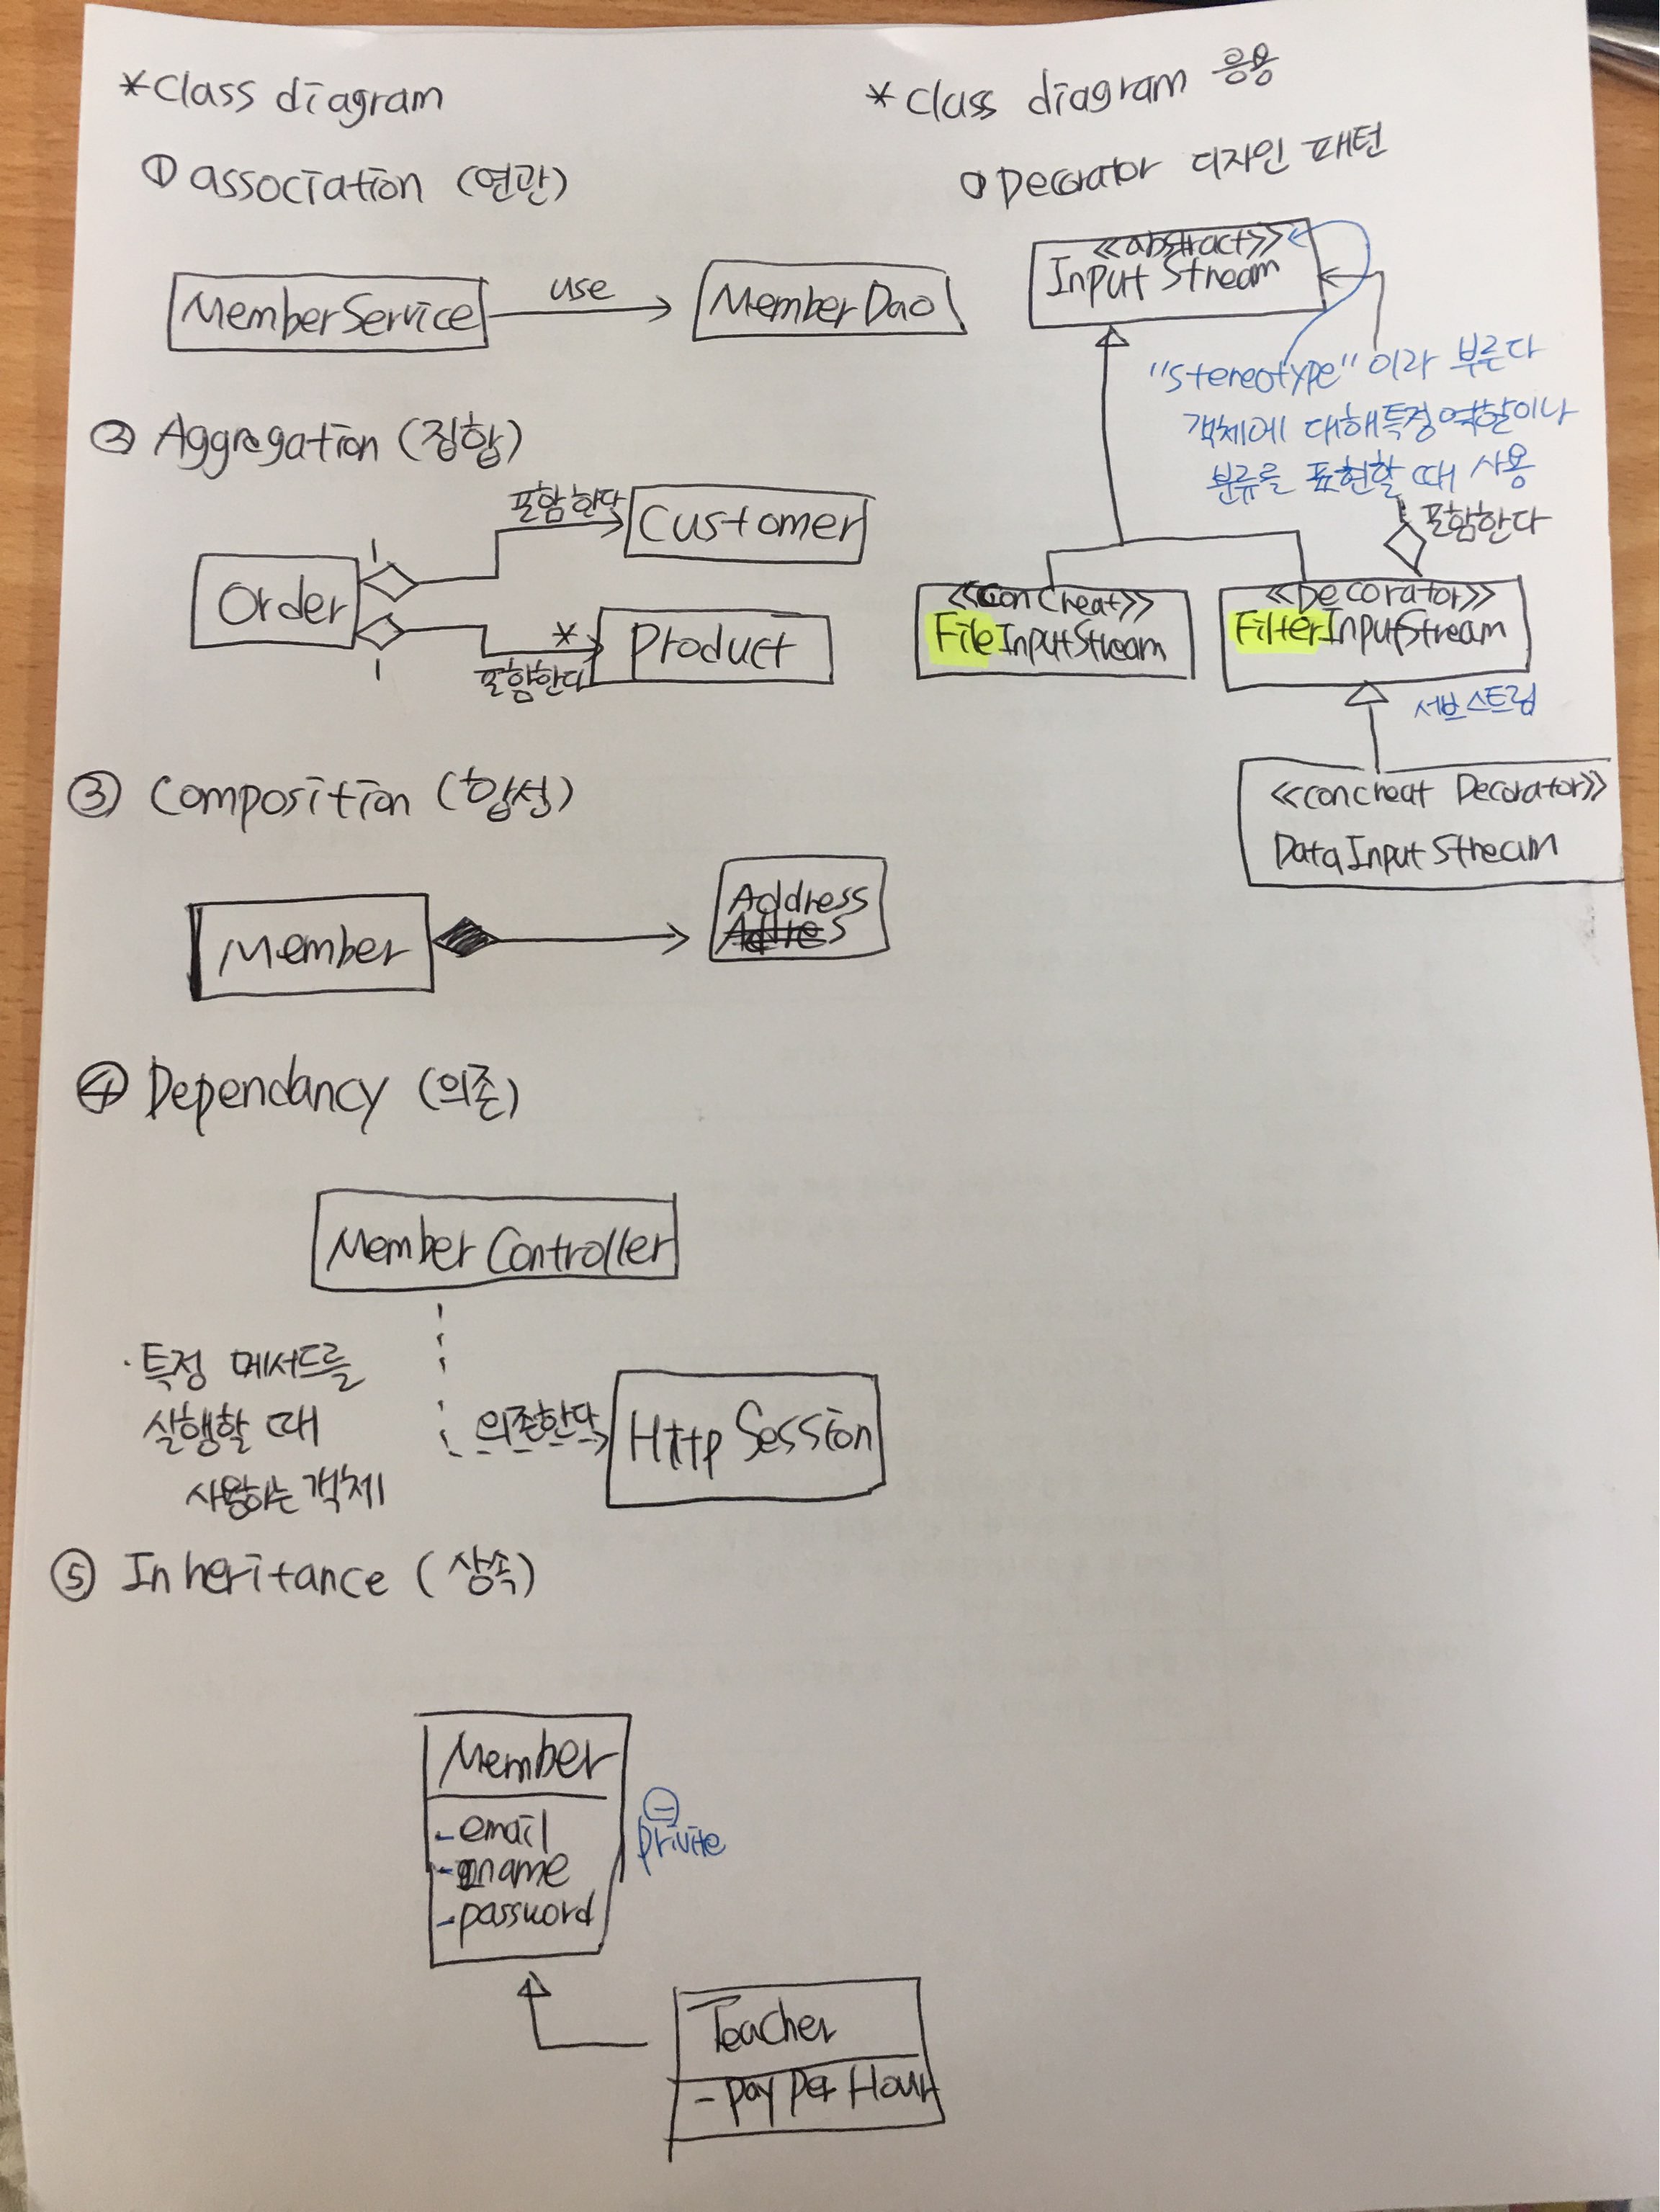 *Class diagram
① association (연관)
MemberService
use
MemberDao
② Aggregation (집합)
Order
1
포함한다
Customer
1
*
포함한다
Product
③ Composition (합성)
Member
Address
Addres
④ Dependancy (의존)
Member Controller
· 특정 메서드를
실행할 때
사용하는 객체
의존한다
Http Session
⑤ Inheritance (상속)
Member
-email
-name
-password
⊖
privite
Teacher
- pay per Hour
* Class diagram 응용
① Decorator 디자인 패턴
<<abstract>>
Input Stream
"stereotype" 이라 부른다
객체에 대해 특정 역할이나
분류를 표현할 때 사용
포함한다
<<Concreat>>
FileInputStream
<<Decorator>>
FilterInputStream
서브스트림
<<concreat Decorator>>
Data Input Stream